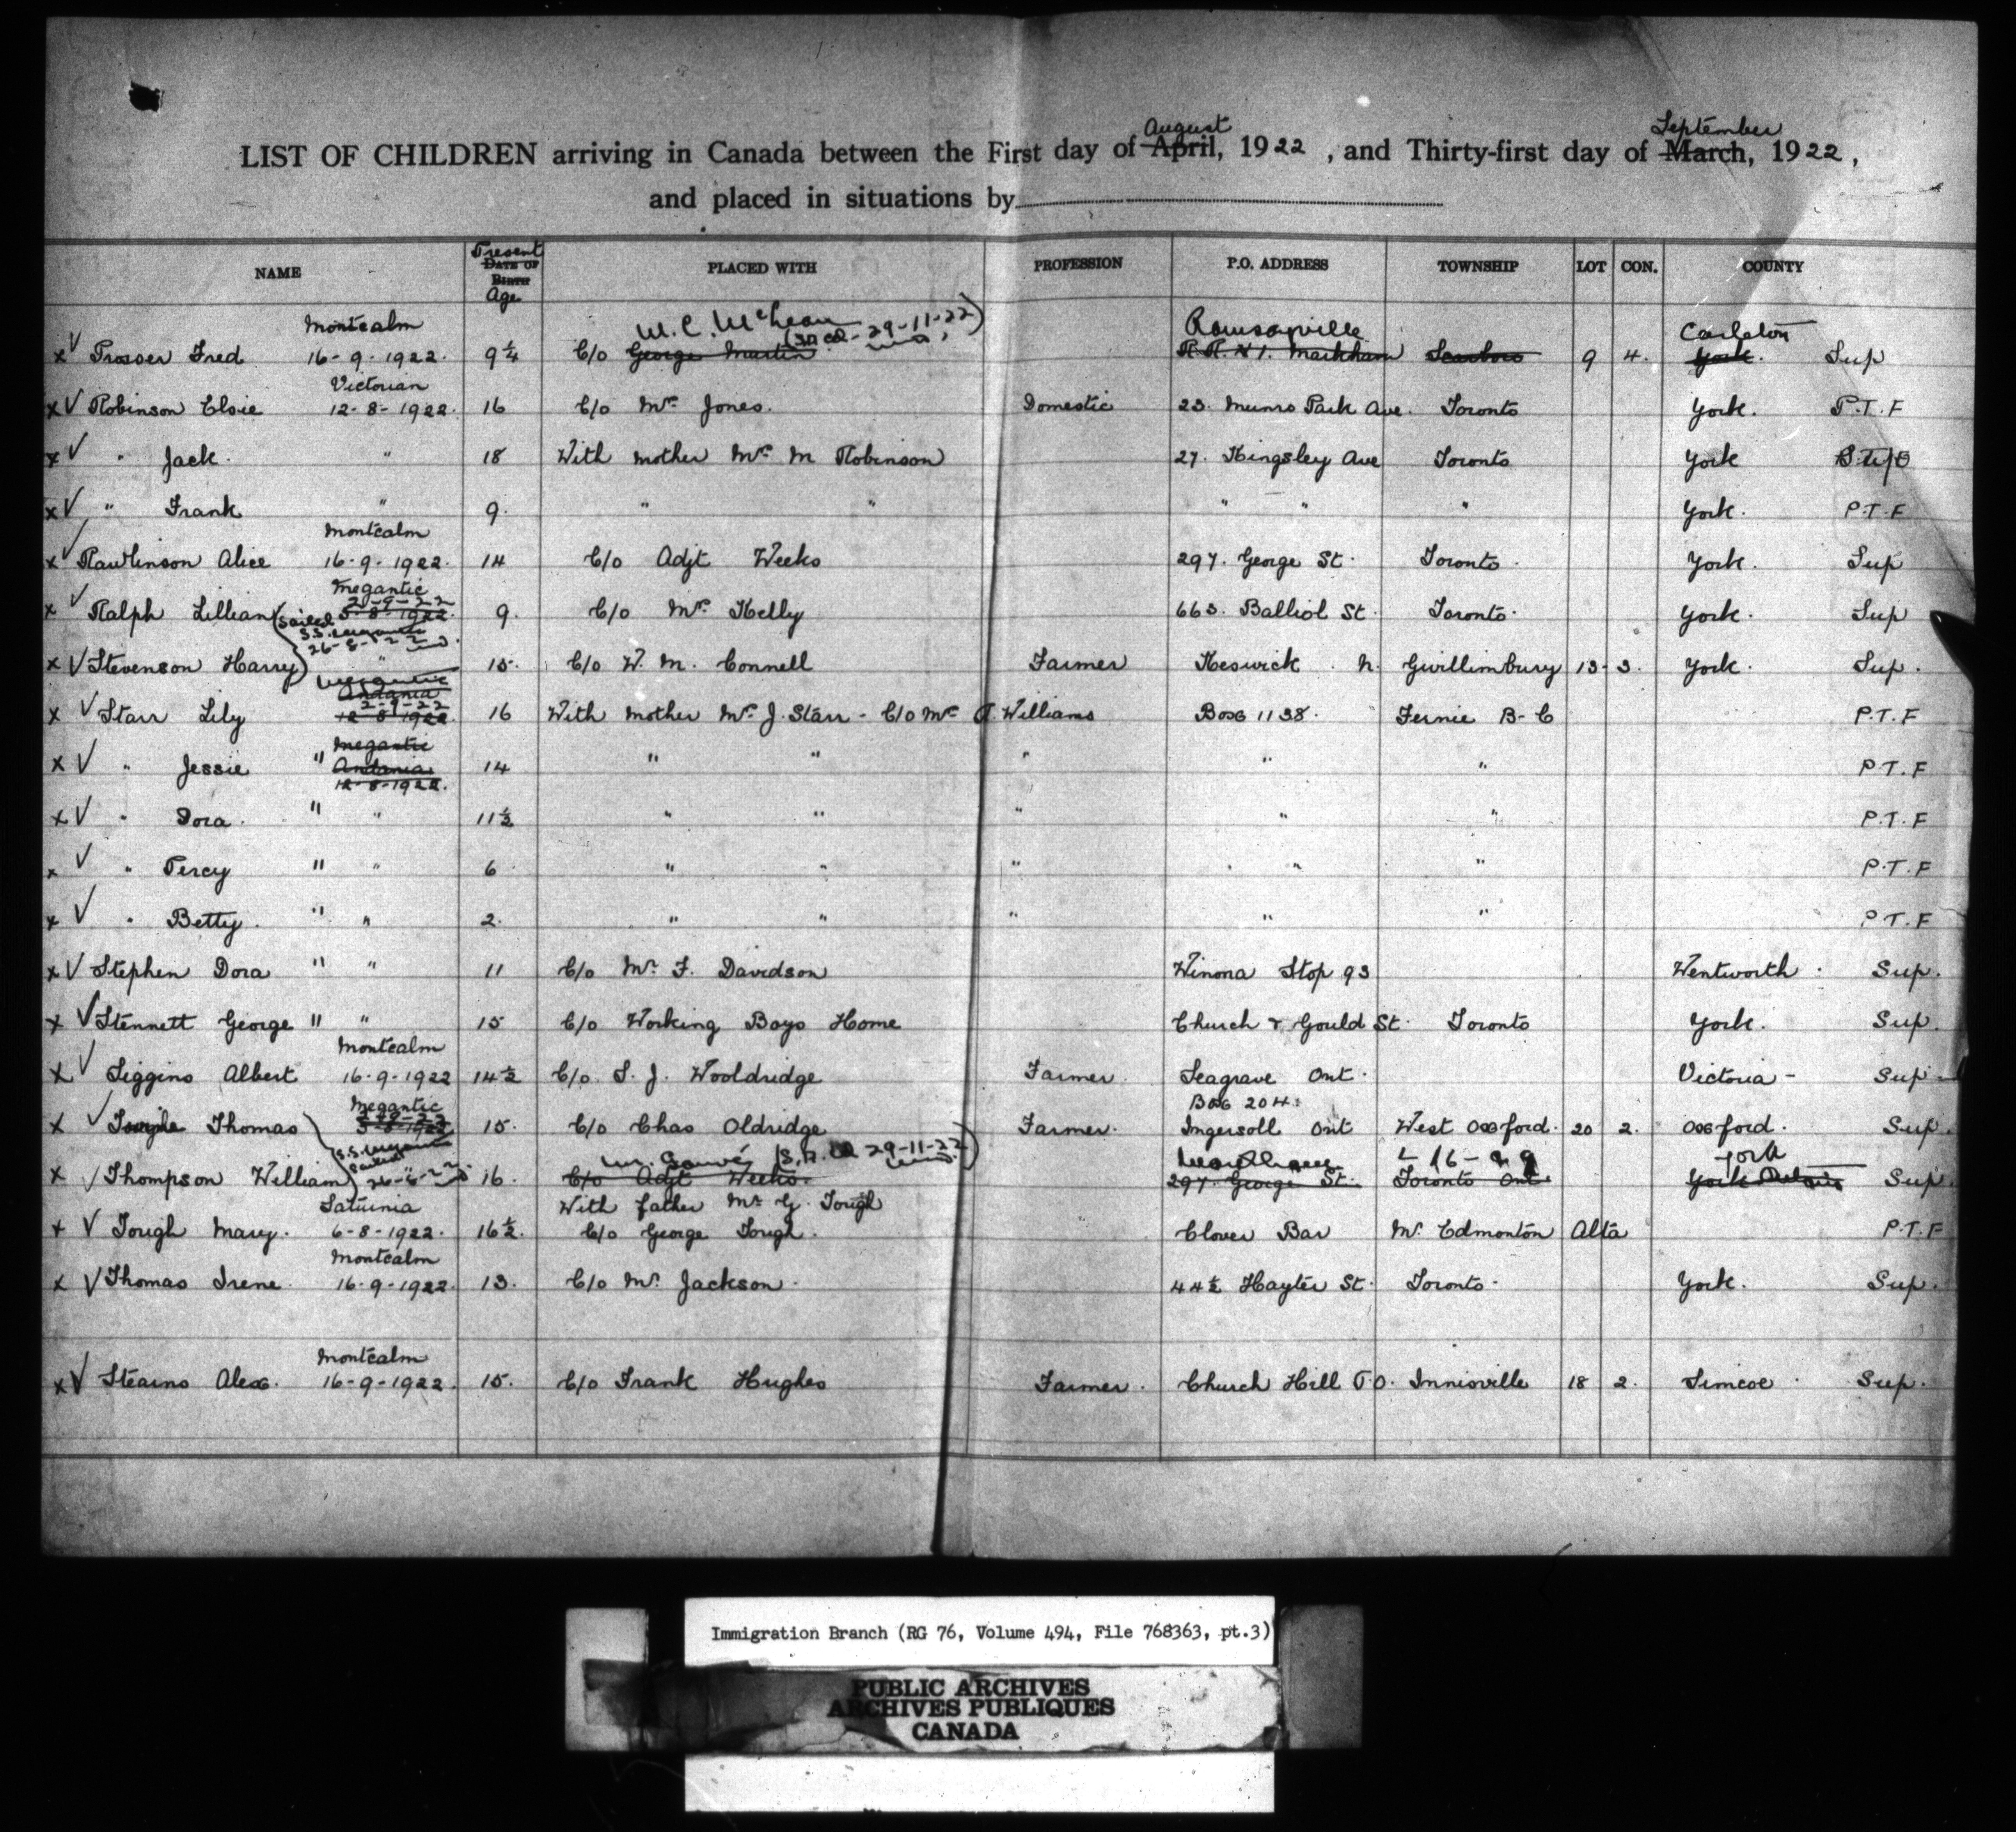 August September
LIST OF CHILDREN arriving in Canada between the First day of April, 1922, and Thirty-first day of March, 1922,
and placed in situations by
Present
NAME DATE OF BIRTH PLACED WITH PROFESSION P.O. ADDRESS TOWNSHIP LOT CON. COUNTY
Age
Montcalm W. C. McLean 29-11-22) Ramsayville Carleton
x V Prosser Fred 16-9-1922. 9¼ C/o George Martin R.R. No 1. Markham Scarboro 9 4. York. Sup
Victorian
x V Robinson Elsie 12-8-1922. 16 C/o Mrs Jones. Domestic 23. Munro Park Ave. Toronto York. P.T.F
x V " Jack. " 18 With mother Mrs M Robinson 27. Kingsley Ave Toronto York
x V " Frank " 9. " " " " " York. P.T.F
Montcalm
x V Rawlinson Alice 16-9-1922. 14 C/o Adjt Weeks 297. George St. Toronto. York. Sup
Megantic
2-9-22
x V Ralph Lillian 5-8-1922. 9. C/o Mrs Kelly 663. Balliol St. Toronto. York. Sup
Sailed
S.S. Megantic
26-8-22
x V Stevenson Harry " 15. C/o W. M. Connell Farmer Keswick. N. Gwillimbury 13. 3. York. Sup.
Megantic
Andania
2-9-22
x V Starr Lily 12-8-1922. 16 With mother Mrs J. Starr - C/o Mrs R. Williams Box 1138. Fernie B-C P.T.F
Megantic
x V " Jessie " Andania 14 " " " " " P.T.F
12-8-1922.
x V " Dora. " " 11½ " " " " " P.T.F
x V " Percy " " 6 " " " " " P.T.F
x V " Betty. " " 2. " " " " " P.T.F
x V Stephen Dora " " 11 C/o Mr. F. Davidson Winona Stop 93 Wentworth. Sup.
x V Stennett George " " 15 C/o Working Boys Home Church & Gould St. Toronto York. Sup.
Montcalm
x V Siggins Albert 16-9-1922 14½ C/o S. J. Wooldridge Farmer. Seagrave Ont. Victoria - Sup.
Megantic Box 204.
2-9-22
x V Thomas 5-8-1922 15. C/o Chas Oldridge Farmer. Ingersoll Ont West Oxford. 20 2. Oxford. Sup.
S.S. Megantic Mr. (S.A. 29-11-22) L 16 - York
Sailed
x V Thompson William 26-8-22 16. C/o Adjt Weeks. 297. George St. Toronto Ont. York Sup.
Saturnia With father Mr G. Tough
x V Tough Mary. 6-8-1922. 16½. C/o George Tough. Clover Bar Nr. Edmonton Alta P.T.F
Montcalm
x V Thomas Irene. 16-9-1922. 13. C/o Mr. Jackson. 44½ Hayter St. Toronto. York. Sup.
Montcalm
x V Stearns Alex. 16-9-1922. 15. C/o Frank Hughes Farmer. Church Hill P.O. Innisville 18 2. Simcoe. Sup.
Immigration Branch (RG 76, Volume 494, File 768363, pt.3)
PUBLIC ARCHIVES
ARCHIVES PUBLIQUES
CANADA